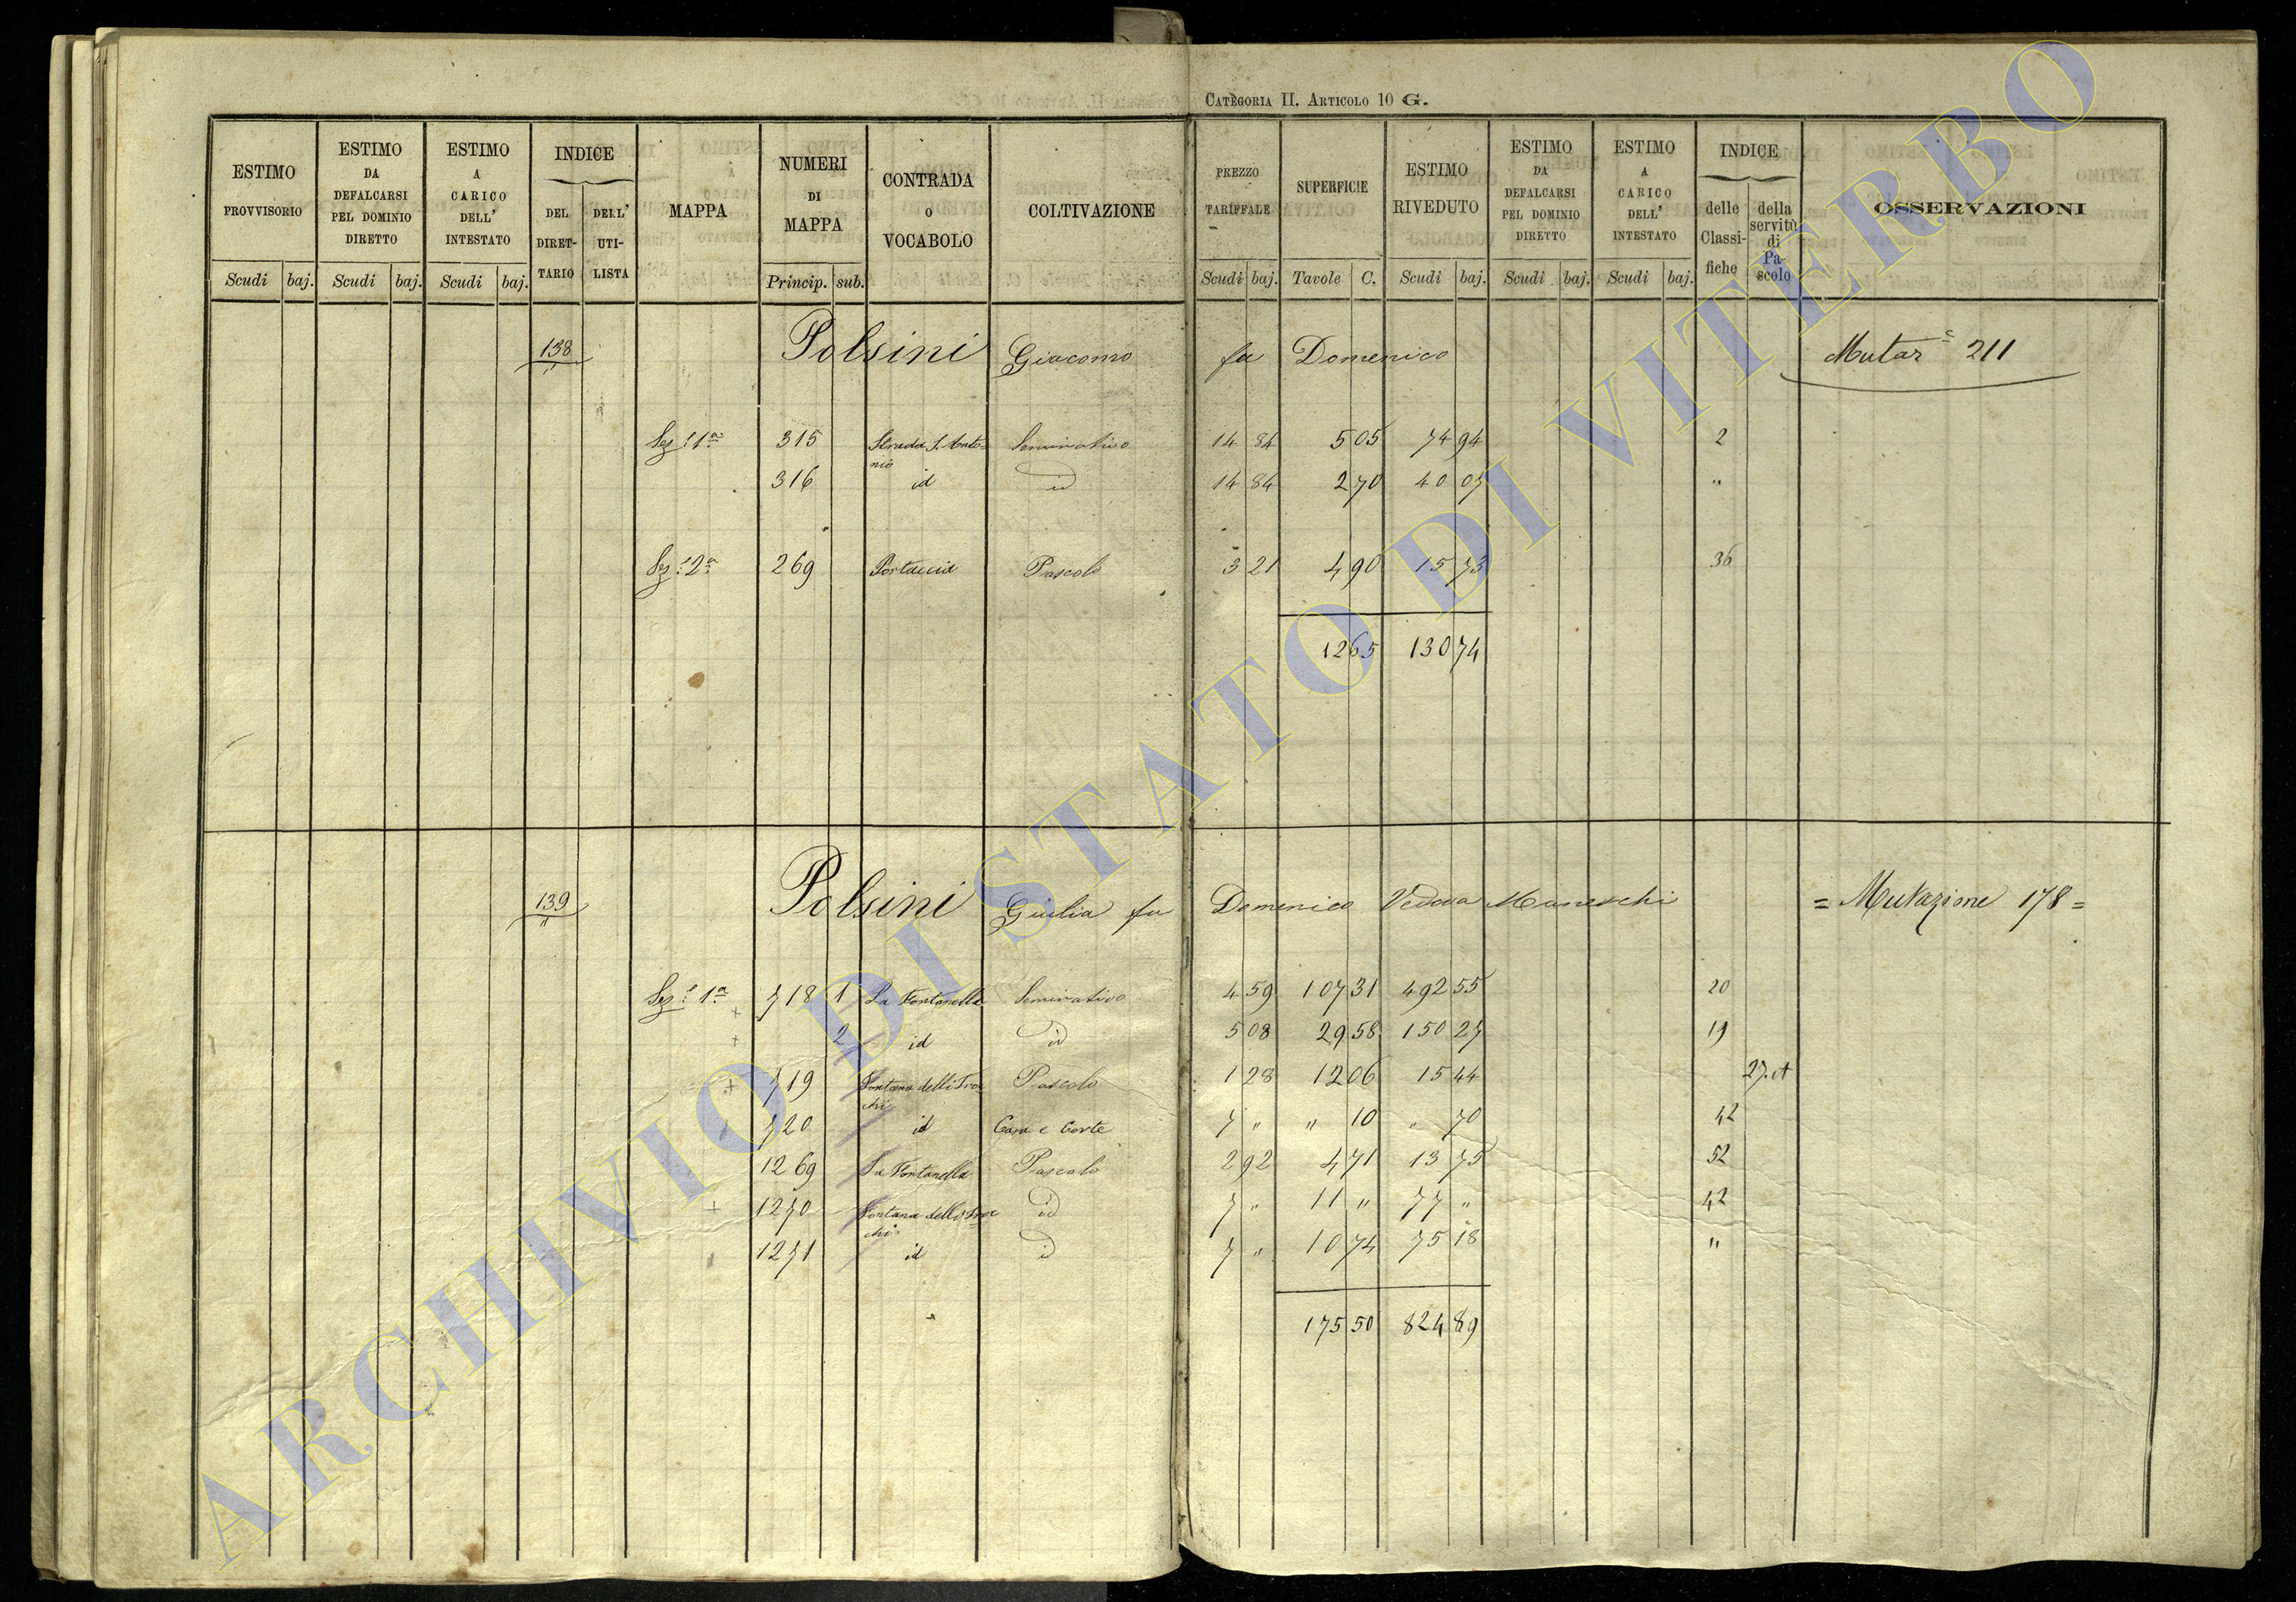 CATEGORIA II. ARTICOLO 10 G.
ESTIMO PROVVISORIO | ESTIMO DA DEFALCARSI PEL DOMINIO DIRETTO | ESTIMO A CARICO DELL' INTESTATO | INDICE DEL DIRET-TARIO | DELL' UTI-LISTA | MAPPA | NUMERI DI MAPPA | CONTRADA O VOCABOLO | COLTIVAZIONE | PREZZO TARIFFALE | SUPERFICIE | ESTIMO RIVEDUTO | ESTIMO DA DEFALCARSI PEL DOMINIO DIRETTO | ESTIMO A CARICO DELL' INTESTATO | INDICE delle Classi-fiche | della servitù di Pa-scolo | OSSERVAZIONI
Scudi baj. Scudi baj. Scudi baj. Princip. sub. Scudi baj. Tavole C. Scudi baj. Scudi baj. Scudi baj.
138 Polsini Giacomo fu Domenico Mutaz.e 211
Sez.e 1a 315 Strada S. Anto-nio Seminativo 14 84 5 05 74 94 2
316 id id 14 84 2 70 40 07 "
Sez.e 2a 269 Portaccia Pascolo 3 21 4 90 15 73 36
12 65 130 74
139 Polsini Giulia fu Domenico Vedova Maneschi = Mutazione 178 =
Sez.e 1a 718 1 La Fontanella Seminativo 4 59 107 31 492 55 20
2 id id 5 08 29 58 150 27 19
719 Fontana delli Troc-chi Pascolo 1 28 12 06 15 44 27. A
720 id Casa e Corte 7 " " 10 " 70 42
1269 La Fontanella Pascolo 2 92 4 71 13 75 52
1270 Fontana delli Troc-chi id 7 " 11 " 77 " 42
1271 id id 7 " 10 74 75 18 "
175 50 824 89
ARCHIVIO DI STATO DI VITERBO